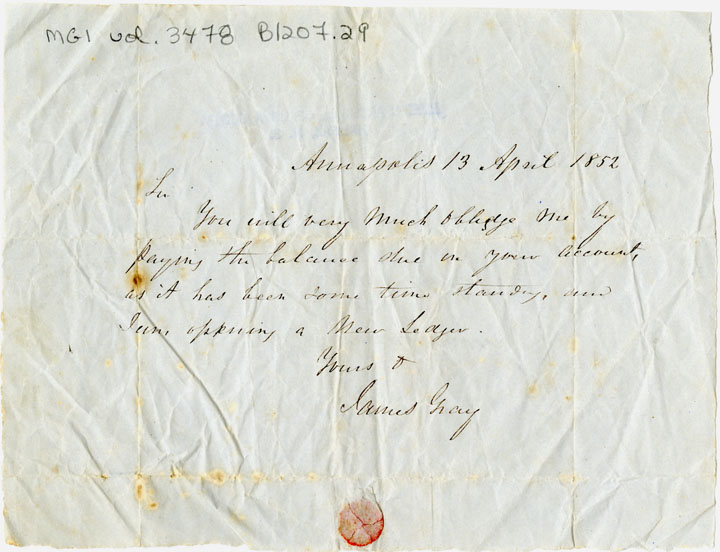 MG1 vol. 3478 B1207.29
Annapolis 13 April 1852
Sir
You will very Much Obledge Me by
Paying the balance due on your account,
as it has been some time standing, and
I am, oppening a New Ledger.
Yours &
James Gray